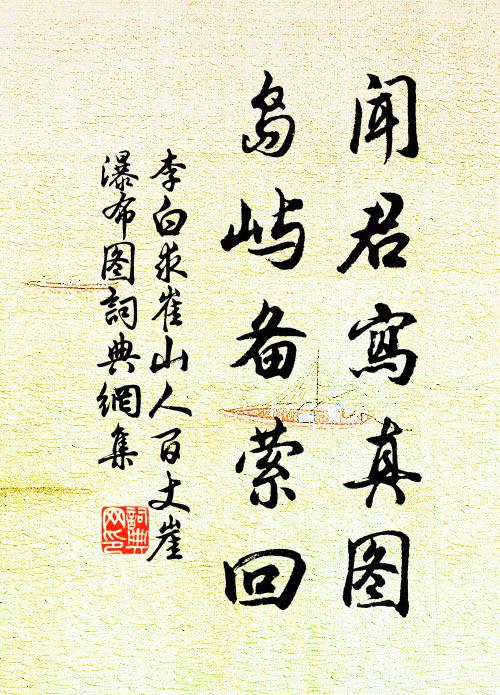 闻君寫真图
岛屿备萦回
李白求崔山人百丈崖
瀑布图詞典網集
詞典网印